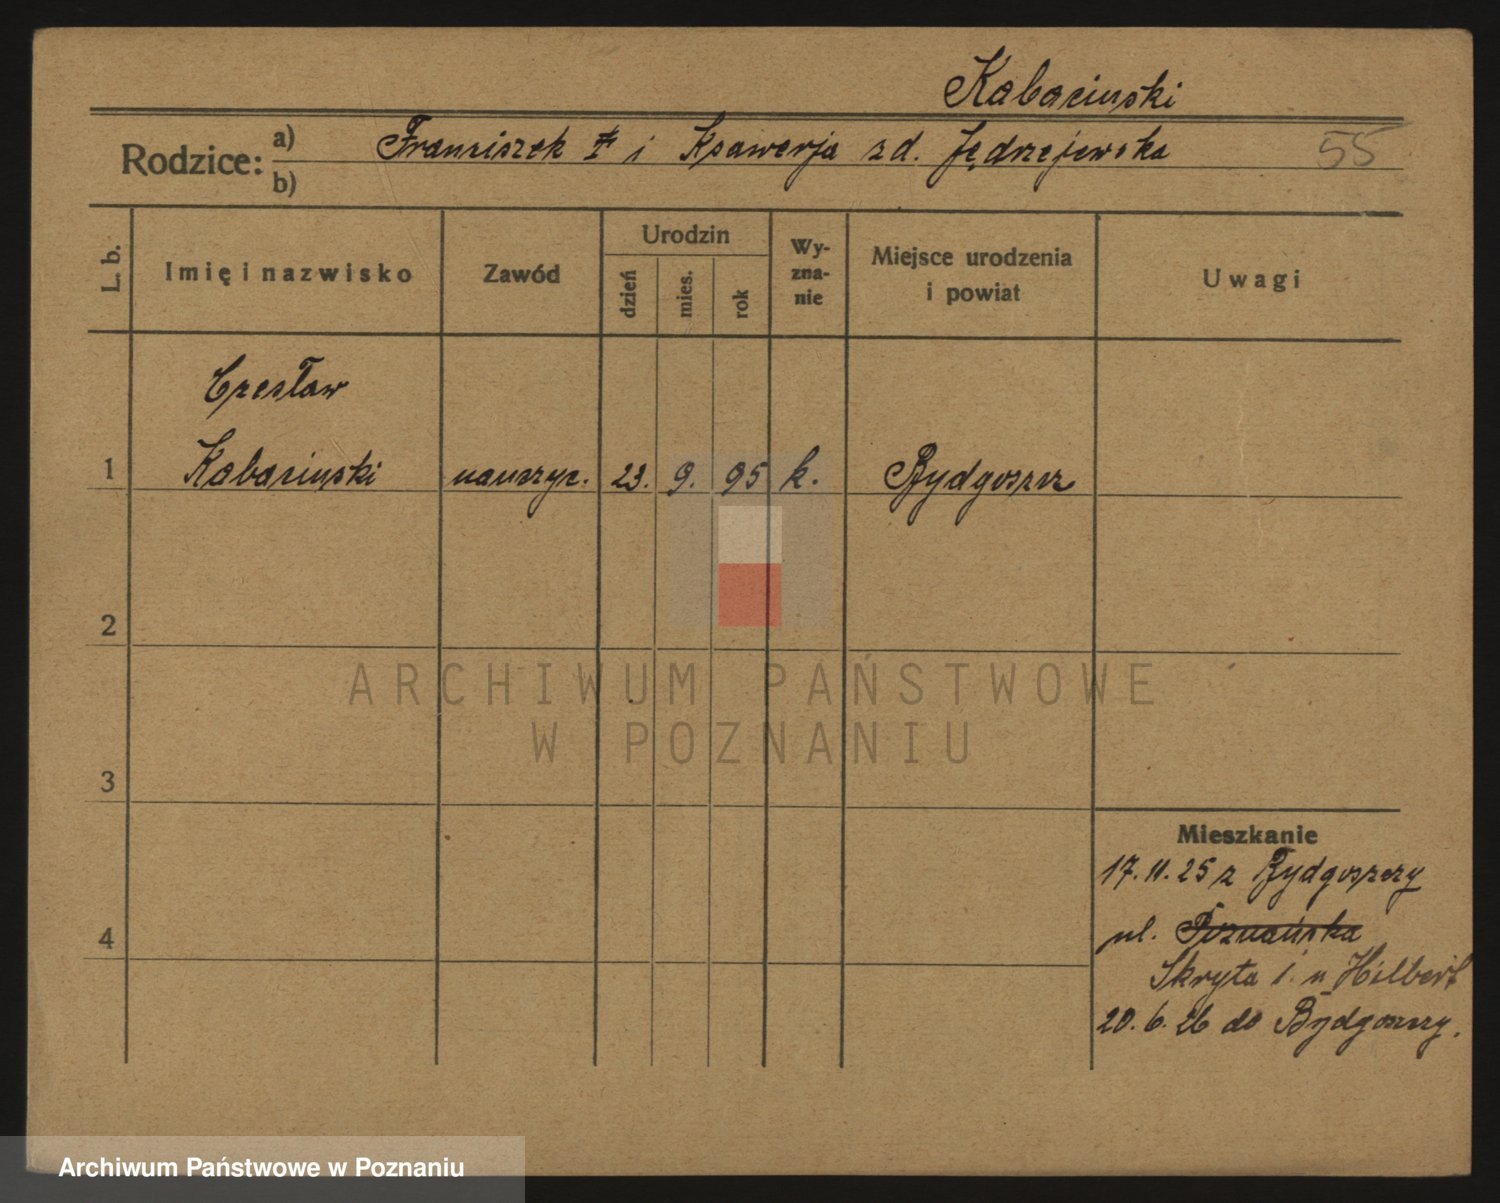 Kabaciński
55
Rodzice: a) Franciszek † i Ksawerja zd. Jędrzejewska
b)
L. b.
Imię i nazwisko
Zawód
Urodzin
dzień
mies.
rok
Wy-
zna-
nie
Miejsce urodzenia
i powiat
Uwagi
Czesław
1 Kabaciński nauczyc. 23. 9. 95 k. Bydgoszcz
2
3
4
ARCHIWUM PAŃSTWOWE
W POZNANIU
Mieszkanie
17. 11. 25 z Bydgoszczy
ul. Poznańska
Skryta 1. u Hilbert
20. 6. 26 do Bydgoszczy.
Archiwum Państwowe w Poznaniu